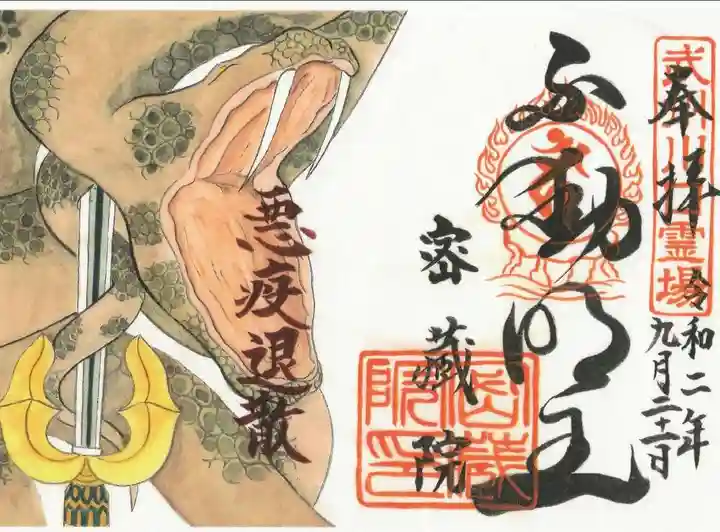 奉拝
令和二年
九月二十一日
不動明王
密蔵院
密蔵院印
悪疫退散